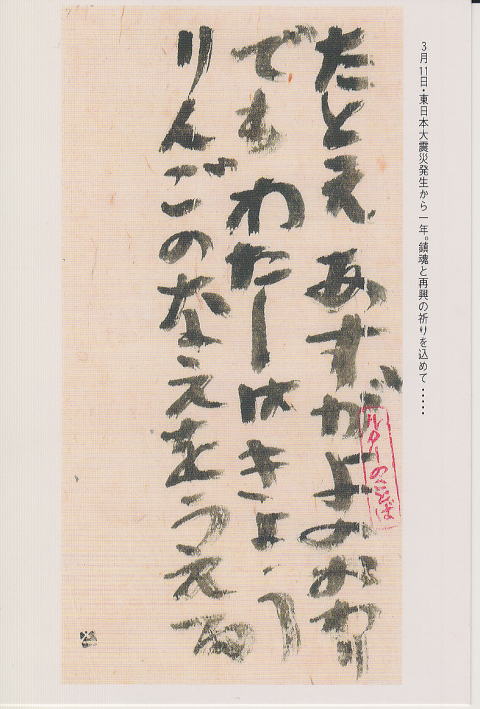 3月11日・東日本大震災発生から一年。鎮魂と再興の祈りを込めて・・・・・
たとえ あすがよのおわり
でも わたしはきょう
りんごのなえをうえる
ルターのことば